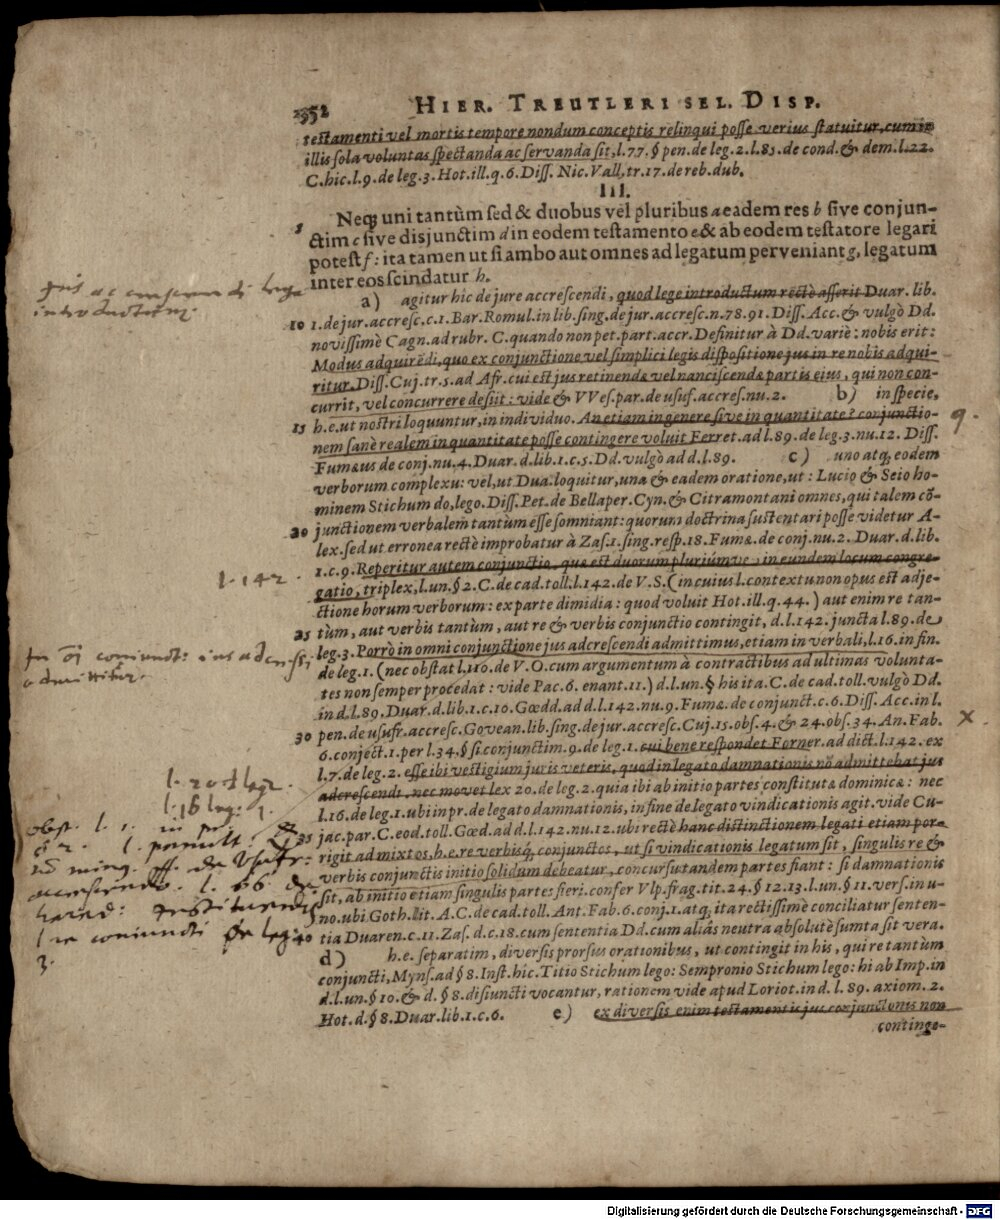 352 HIER. TREUTLERI SEL. DISP.
testamenti vel mortis tempore nondum conceptis relinqui posse verius statuitur, cum in
illis sola voluntas spectanda ac servanda sit, l.77. § pen. de leg. 2. l.83. de cond. & dem. l.22.
C. hic. l.9. de leg. 3. Hot. ill. q. 6. Diss. Nic. Vall. tr. 17. de reb. dub.
III.
Neq; uni tantùm sed & duobus vel pluribus a eadem res b sive conjun-
ctim c sive disjunctim d in eodem testamento e & ab eodem testatore legari
potest f: ita tamen ut si ambo aut omnes ad legatum perveniant g, legatum
inter eos scindatur h.
a) agitur hic de jure accrescendi, quod lege introductum rectè asserit Duar. lib.
10 1. de jur. accresc. c.1. Bar. Romul. in lib. sing. de jur. accresc. n.78.91. Diss. Acc. & vulgò Dd.
novissimè Cagn. ad rubr. C. quando non pet. part. accr. Definitur à Dd. variè: nobis erit:
Modus adquirẽdi, quo ex conjunctione vel simplici legis dispositione jus in re nobis adqui-
ritur. Diss. Cuj. tr. 5. ad Afr. cui est jus retinendæ vel nanciscendæ partis ejus, qui non con-
currit, vel concurrere desiit: vide & VVes. par. de usuf. accres. nu.2. b) in specie,
15 h.e. ut nostri loquuntur, in individuo. An etiam in genere sive in quantitate? conjunctio-
nem sanè realem in quantitate posse contingere voluit Ferret. ad l.89. de leg. 3. nu.12. Diss.
Fumæus de conj. nu.4. Duar. d. lib. 1. c. 5. Dd. vulgò ad d. l.89. c) uno atq; eodem
verborum complexu: vel, ut Dua. loquitur, una & eadem oratione, ut: Lucio & Seio ho-
minem Stichum do, lego. Diss. Pet. de Bellaper. Cyn. & Citramontani omnes, qui talem cõ-
20 junctionem verbalem tantùm esse somniant: quorum doctrina sustentari posse videtur A-
lex. sed ut erronea rectè improbatur à Zas. 1. sing. resp. 18. Fumæ. de conj. nu.2. Duar. d. lib.
1. c. 9. Reperitur autem conjunctio, quæ est duorum pluriúmve, in eundem locum congre-
gatio, triplex, l. un. § 2. C. de cad. toll. l.142. de V.S. (in cuius l. contextu non opus est adje-
ctione horum verborum: ex parte dimidia: quod voluit Hot. ill. q. 44.) aut enim re tan-
25 tùm, aut verbis tantùm, aut re & verbis conjunctio contingit, d. l.142. juncta l.89. de
leg. 3. Porrò in omni conjunctione jus adcrescendi admittimus, etiam in verbali, l.16. in fin.
de leg. 1. (nec obstat l.110. de V.O. cum argumentum à contractibus ad ultimas volunta-
tes non semper procedat: vide Pac. 6. enant. 11.) d. l. un. § his ita. C. de cad. toll. vulgò Dd.
in d. l.89. Duar. d. lib. 1. c. 10. Gœdd. ad d. l.142. nu.9. Fumæ. de conjunct. c. 6. Diss. Acc. in l.
30 pen. de usufr. accresc. Govean. lib. sing. de jur. accresc. Cuj. 15. obs. 4. & 24. obs. 34. An. Fab.
6. conject. 1. per l.34. § si conjunctim. 9. de leg. 1. cui bene respondet Forner. ad dict. l.142. ex
l.7. de leg. 2. esse ibi vestigium juris veteris, quod in legato damnationis nõ admittebat jus
adcrescendi. nec movet lex 20. de leg. 2. quia ibi ab initio partes constitutæ dominicæ: nec
l.16. de leg. 1. ubi inpr. de legato damnationis, in fine de legato vindicationis agit. vide Cu-
35 jac. par. C. eod. toll. Gœd. ad d. l.142. nu.12. ubi rectè hanc distinctionem legati etiam por-
rigit ad mixtos, h.e. re verbisq; conjunctos, ut si vindicationis legatum sit, singulis re &
verbis conjunctis initio solidum debeatur, concursu tandem partes fiant: si damnationis
sit, ab initio etiam singulis partes fieri. confer Vlp. frag. tit. 24. § 12.13. l. un. § 11. vers. in u-
no. ubi Goth. lit. A. C. de cad. toll. Ant. Fab. 6. conj. 1. atq; ita rectissimè conciliatur senten-
40 tia Duaren. c. 11. Zas. d. c. 18. cum sententia Dd. cum aliâs neutra absolutè sumta sit vera.
d) h.e. separatim, diversis prorsus orationibus, ut contingit in his, qui re tantùm
conjuncti, Myns. ad § 8. Inst. hic. Titio Stichum lego: Sempronio Stichum lego: hi ab Imp. in
d. l. un. § 10. & d. § 8. disiuncti vocantur, rationem vide apud Loriot. in d. l. 89. axiom. 2.
Hot. d. § 8. Duar. lib. 1. c. 6. e) ex diversis enim testamentis jus conjunctionis non
continge-
l. 142.
l. 20 d leg 2.
l. 16 leg. 1.
Digitalisierung gefördert durch die Deutsche Forschungsgemeinschaft - DFG